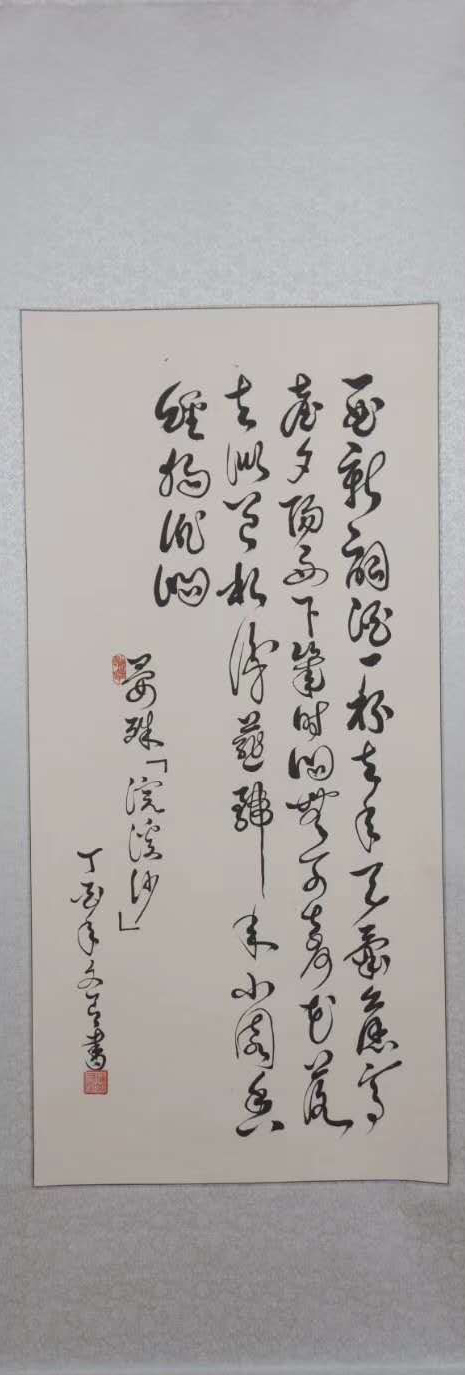 一曲新詞酒一杯去年天氣舊亭
臺夕陽西下幾時回無可奈何花落
去似曾相識燕歸來小園香
徑獨徘徊
晏殊「浣溪沙」
丁酉年文書